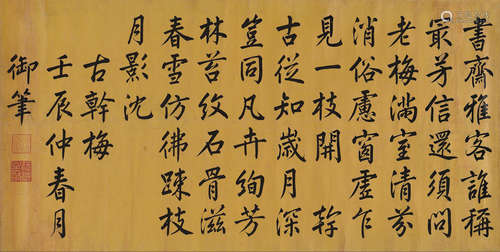 書齋雅客誰稱
最芳信還須問
老梅滿室清芬
消俗慮窗虛乍
見一枝開 幹
古從知歲月深
豈同凡卉絢芳
林苔紋石骨滋
春雪仿彿疎枝
月影沈
古幹梅
壬辰仲春月
御筆